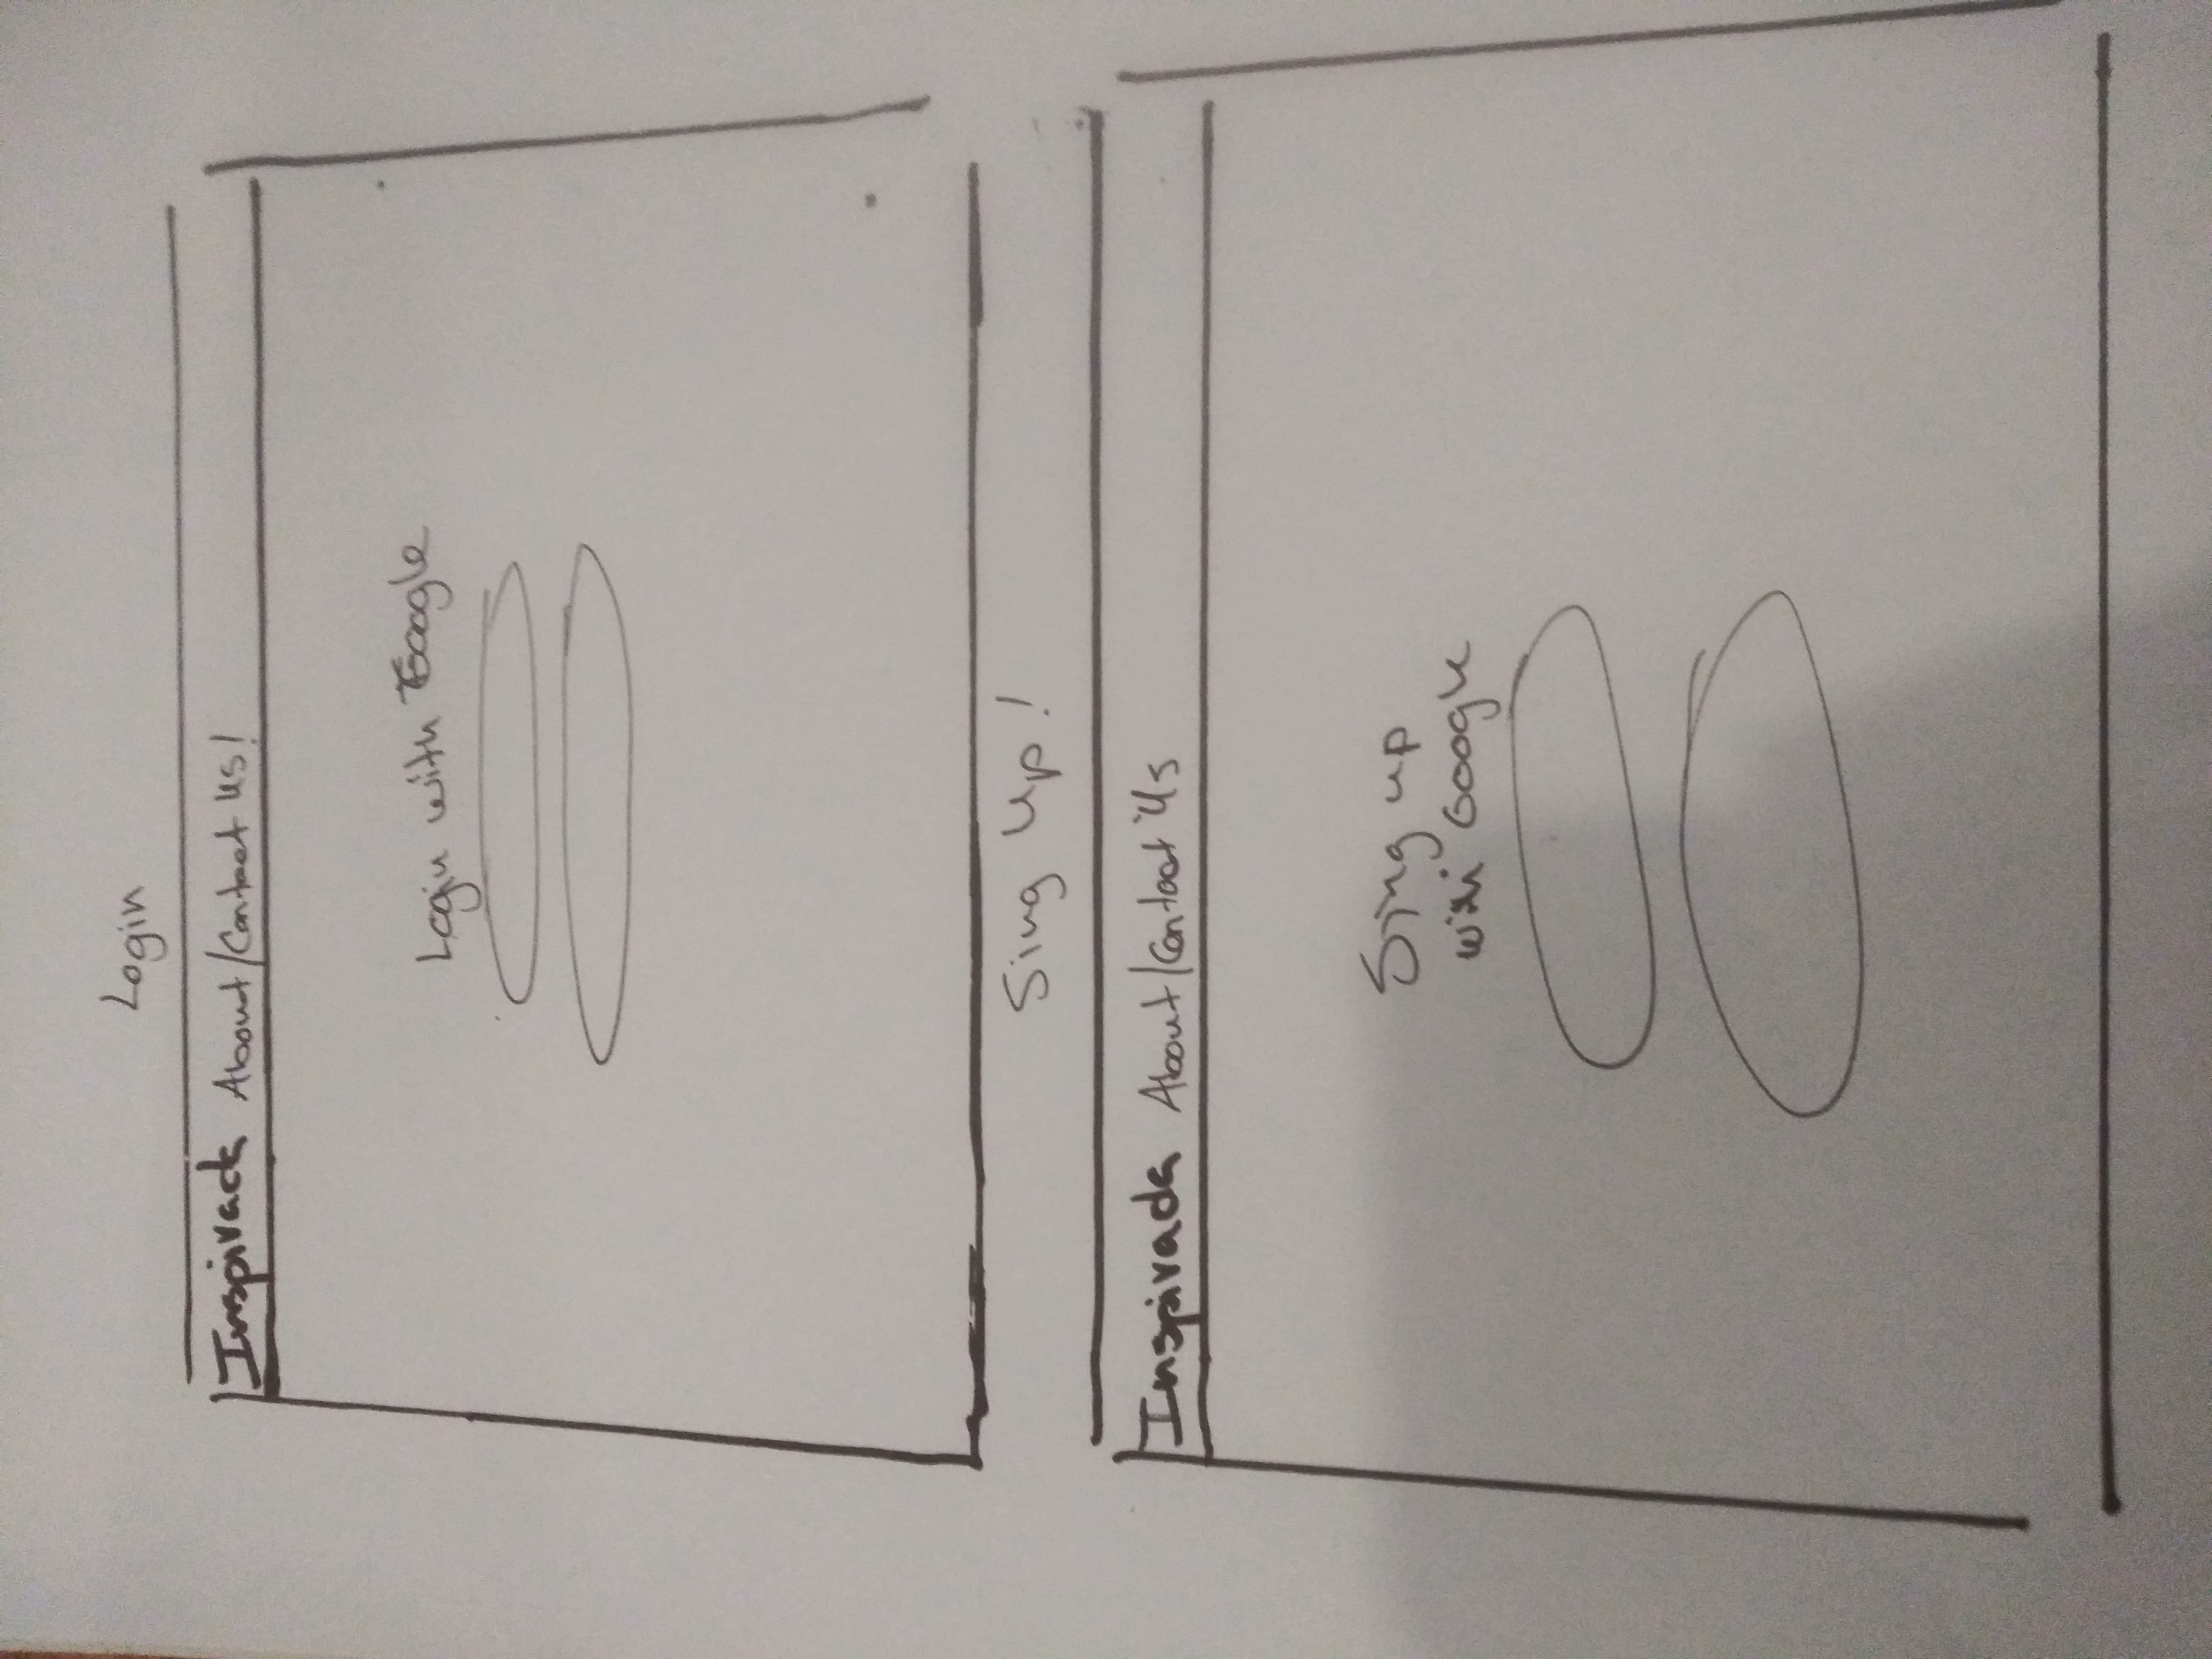 Login
Inspirada About/Contact Us!
Login with Google
Sing Up!
Inspirada About/Contact Us
Sing up
with Google